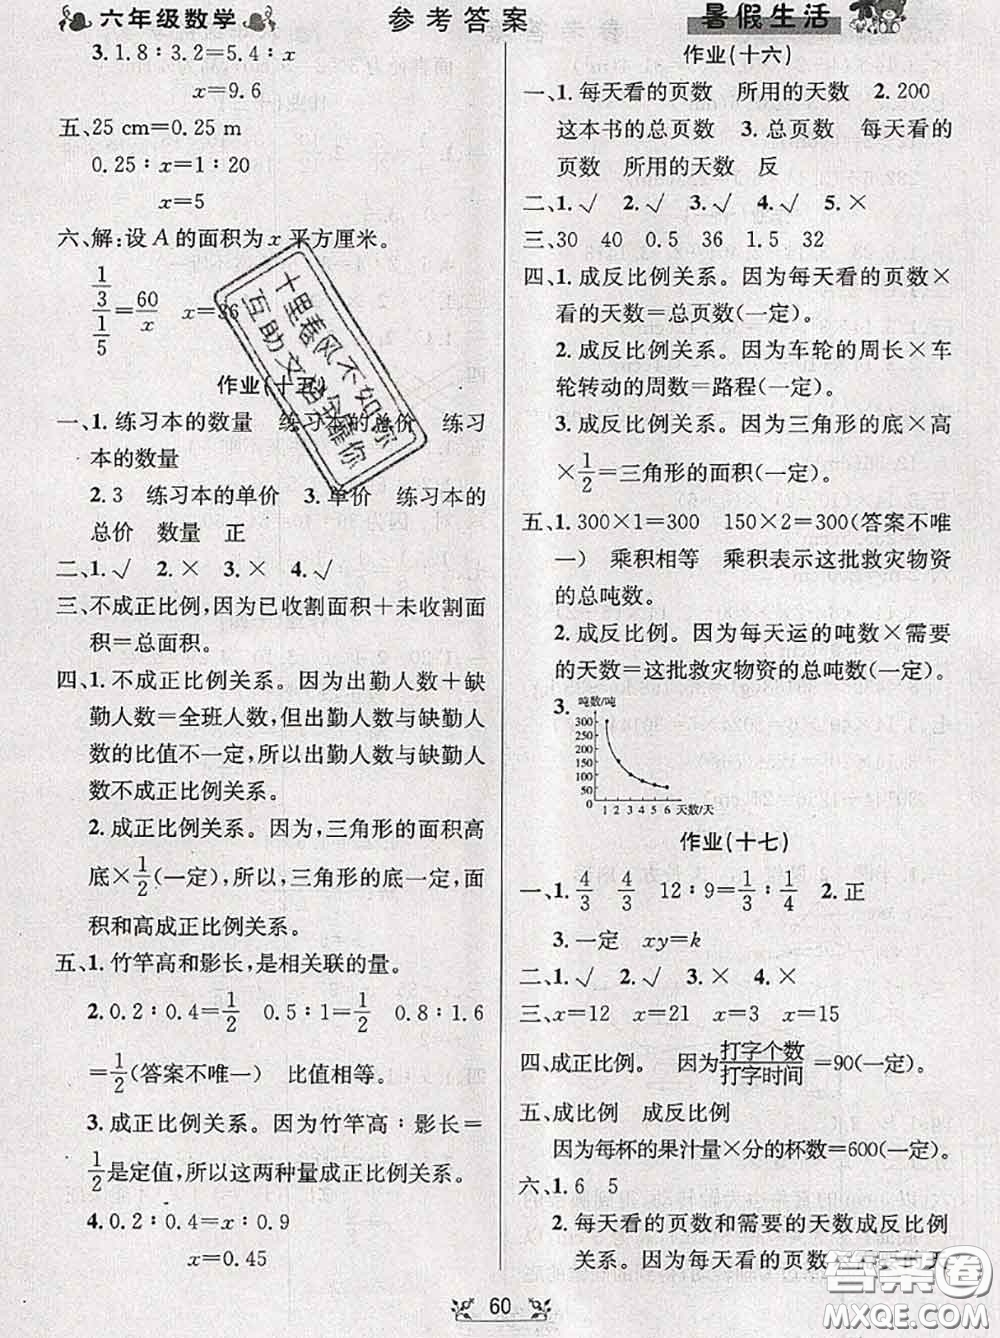 六年级数学
参考答案
暑假生活
3. 1.8∶3.2=5.4∶x
x=9.6
五、25 cm=0.25 m
0.25∶x=1∶20
x=5
六、解:设 A 的面积为 x 平方厘米。
(1/3)/(1/5)=60/x x=36
作业(十五)
一、1. 练习本的数量 练习本的总价 练习
本的数量
2. 3 练习本的单价 3. 单价 练习本的
总价 数量 正
二、1. √ 2. × 3. × 4. √
三、不成正比例,因为已收割面积+未收割面
积=总面积。
四、1. 不成正比例关系。因为出勤人数+缺
勤人数=全班人数,但出勤人数与缺勤人
数的比值不一定,所以出勤人数与缺勤人
数不成正比例关系。
2. 成正比例关系。因为,三角形的面积÷高=
底×1/2(一定),所以,三角形的底一定,面
积和高成正比例关系。
五、1. 竹竿高和影长,是相关联的量。
2. 0.2∶0.4=1/2 0.5∶1=1/2 0.8∶1.6
=1/2(答案不唯一) 比值相等。
3. 成正比例关系。因为竹竿高∶影长=
1/2是定值,所以这两种量成正比例关系。
4. 0.2∶0.4=x∶0.9
x=0.45
作业(十六)
一、1. 每天看的页数 所用的天数 2. 200
这本书的总页数 3. 总页数 每天看的
页数 所用的天数 反
二、1. √ 2. √ 3. √ 4. √ 5. ×
三、30 40 0.5 36 1.5 32
四、1. 成反比例关系。因为每天看的页数×
看的天数=总页数(一定)。
2. 成反比例关系。因为车轮的周长×车
轮转动的周数=路程(一定)。
3. 成反比例关系。因为三角形的底×高
×1/2=三角形的面积(一定)。
五、1. 300×1=300 150×2=300(答案不唯
一) 乘积相等 乘积表示这批救灾物资的
总吨数。
2. 成反比例。因为每天运的吨数×需要
的天数=这批救灾物资的总吨数(一定)。
3. 吨数/吨
300
250
200
150
100
50
0
1 2 3 4 5 6 天数/天
作业(十七)
一、1. 4/3 4/3 12∶9=1/3∶1/4 2. 正
3. 一定 xy=k
二、√ √ × ×
三、x=12 x=21 x=3 x=15
四、成正比例。 因为打字个数/打字时间=90(一定)。
五、成比例 成反比例
因为每杯的果汁量×分的杯数=600(一定)。
六、1. 6 5
2. 每天看的页数和需要的天数成反比例
关系。因为每天看的页数×
的天
60
十里春风不如你
互助文档全靠你
答案圈
MXQE.COM